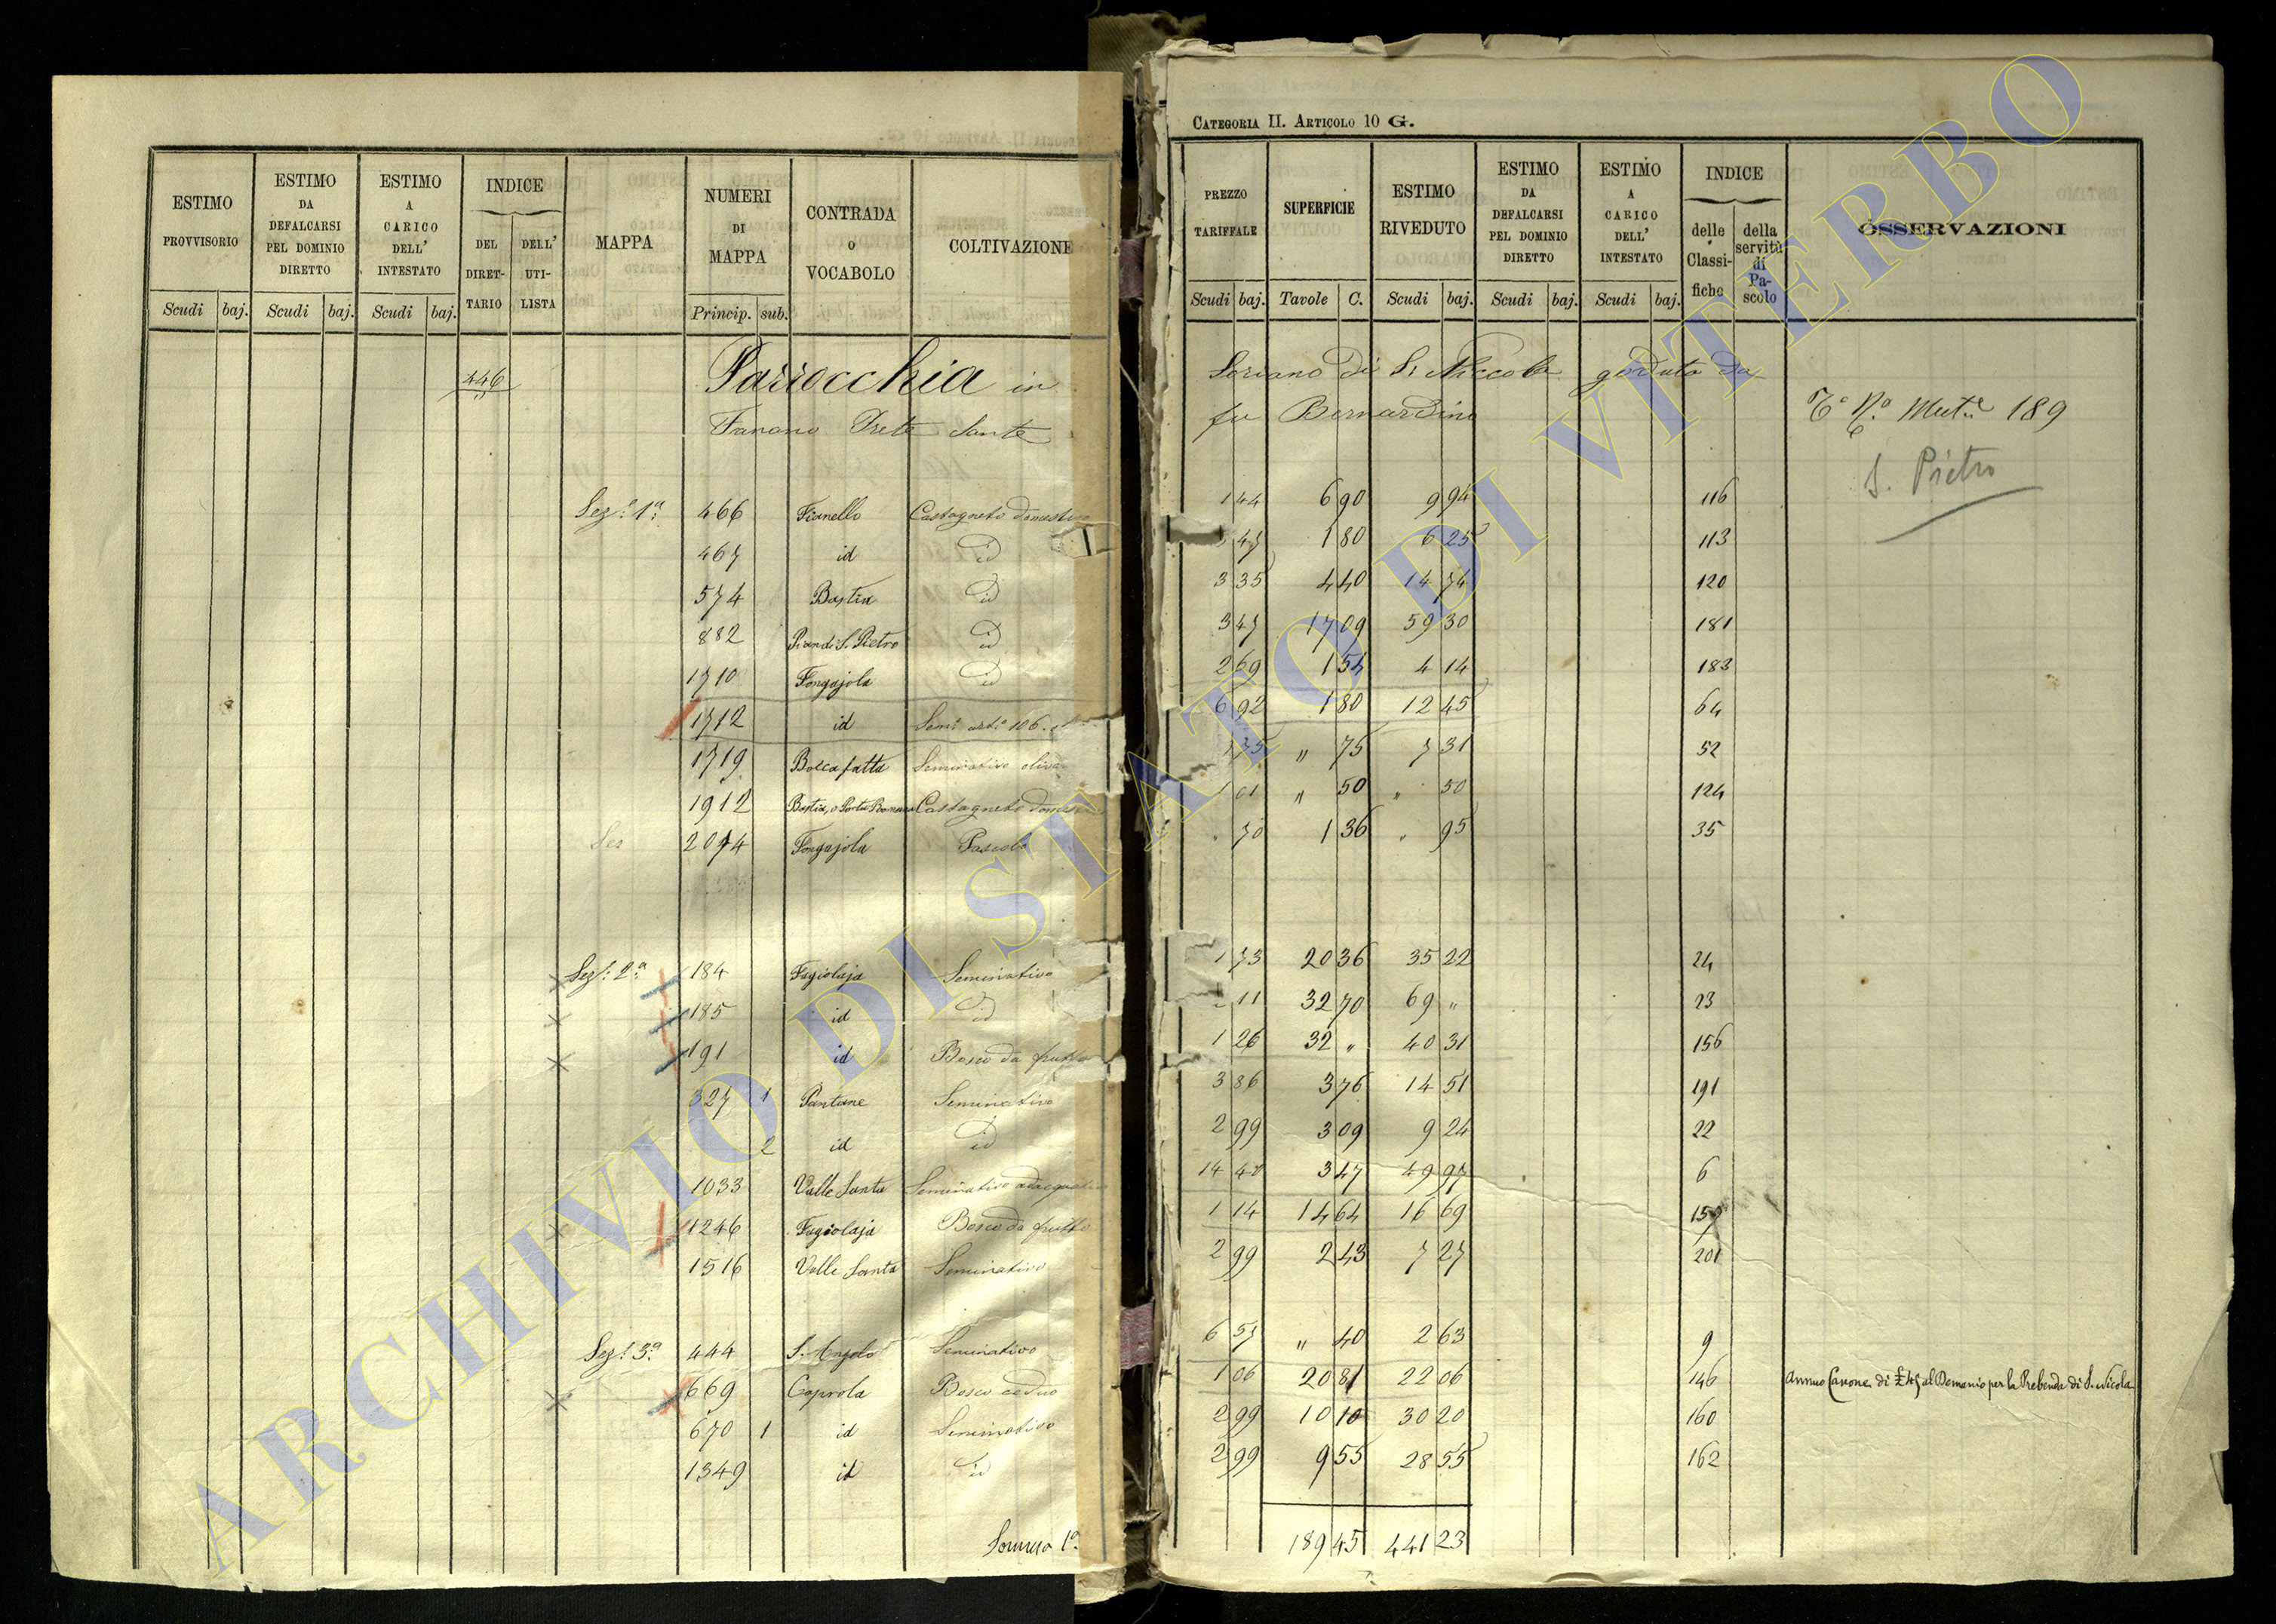 CATEGORIA II. ARTICOLO 10 G.
ESTIMO PROVVISORIO Scudi baj.
ESTIMO DA DEFALCARSI PEL DOMINIO DIRETTO Scudi baj.
ESTIMO A CARICO DELL' INTESTATO Scudi baj.
INDICE DEL DIRET-TARIO DELL' UTI-LISTA
MAPPA
NUMERI DI MAPPA Princip. sub.
CONTRADA o VOCABOLO
COLTIVAZIONE
PREZZO TARIFFALE Scudi baj.
SUPERFICIE Tavole C.
ESTIMO RIVEDUTO Scudi baj.
ESTIMO DA DEFALCARSI PEL DOMINIO DIRETTO Scudi baj.
ESTIMO A CARICO DELL' INTESTATO Scudi baj.
INDICE delle Classi-fiche della servitù di Pa-scolo
OSSERVAZIONI
446 Parrocchia in Soriano di S. Niccola goduta da
Fanano Prete Sante fu Bernardino
Mut.e 189
S. Pietro
Sez.e 1a 466 Fianello Castagneto domestico 1 44 6 90 9 94 116
467 id id 3 47 1 80 6 25 113
574 Bastia id 3 35 4 40 14 74 120
882 Pian di S. Pietro id 3 47 17 09 59 30 181
1710 Fongajola id 2 69 1 54 4 14 183
1712 id Sem.o 106 6 92 1 80 12 45 64
1719 Boccafatta Seminativo oliva 75 " 75 7 31 52
1912 Bastia, o Porta Romana Castagneto domes 1 01 " 50 " 50 124
Sez 2074 Fongajola Pascolo " 70 1 36 " 95 35
Sez.e 2a 184 Fagiolaja Seminativo 1 73 20 36 35 22 24
185 id id 2 11 32 70 69 " 23
191 id Bosco da frutto 1 26 32 " 40 31 156
327 1 Pantane Seminativo 3 86 3 76 14 51 191
2 id id 2 99 3 09 9 24 22
1033 Valle Santa Seminativo adacquativo 14 40 3 47 49 97 6
1246 Fagiolaja Bosco da frutto 1 14 14 64 16 69 157
1516 Valle Santa Seminativo 2 99 2 43 7 27 201
Sez.e 3a 444 S. Angelo Seminativo 6 57 " 40 2 63 9
669 Caprola Bosco ceduo 1 06 20 81 22 06 146 Annuo Canone di al Demanio per la Prebenda di S. Nicola
670 1 id Seminativo 2 99 10 10 30 20 160
1349 id id 2 99 9 55 28 55 162
Somma 1a 189 45 441 23
ARCHIVIO DI STATO DI VITERBO